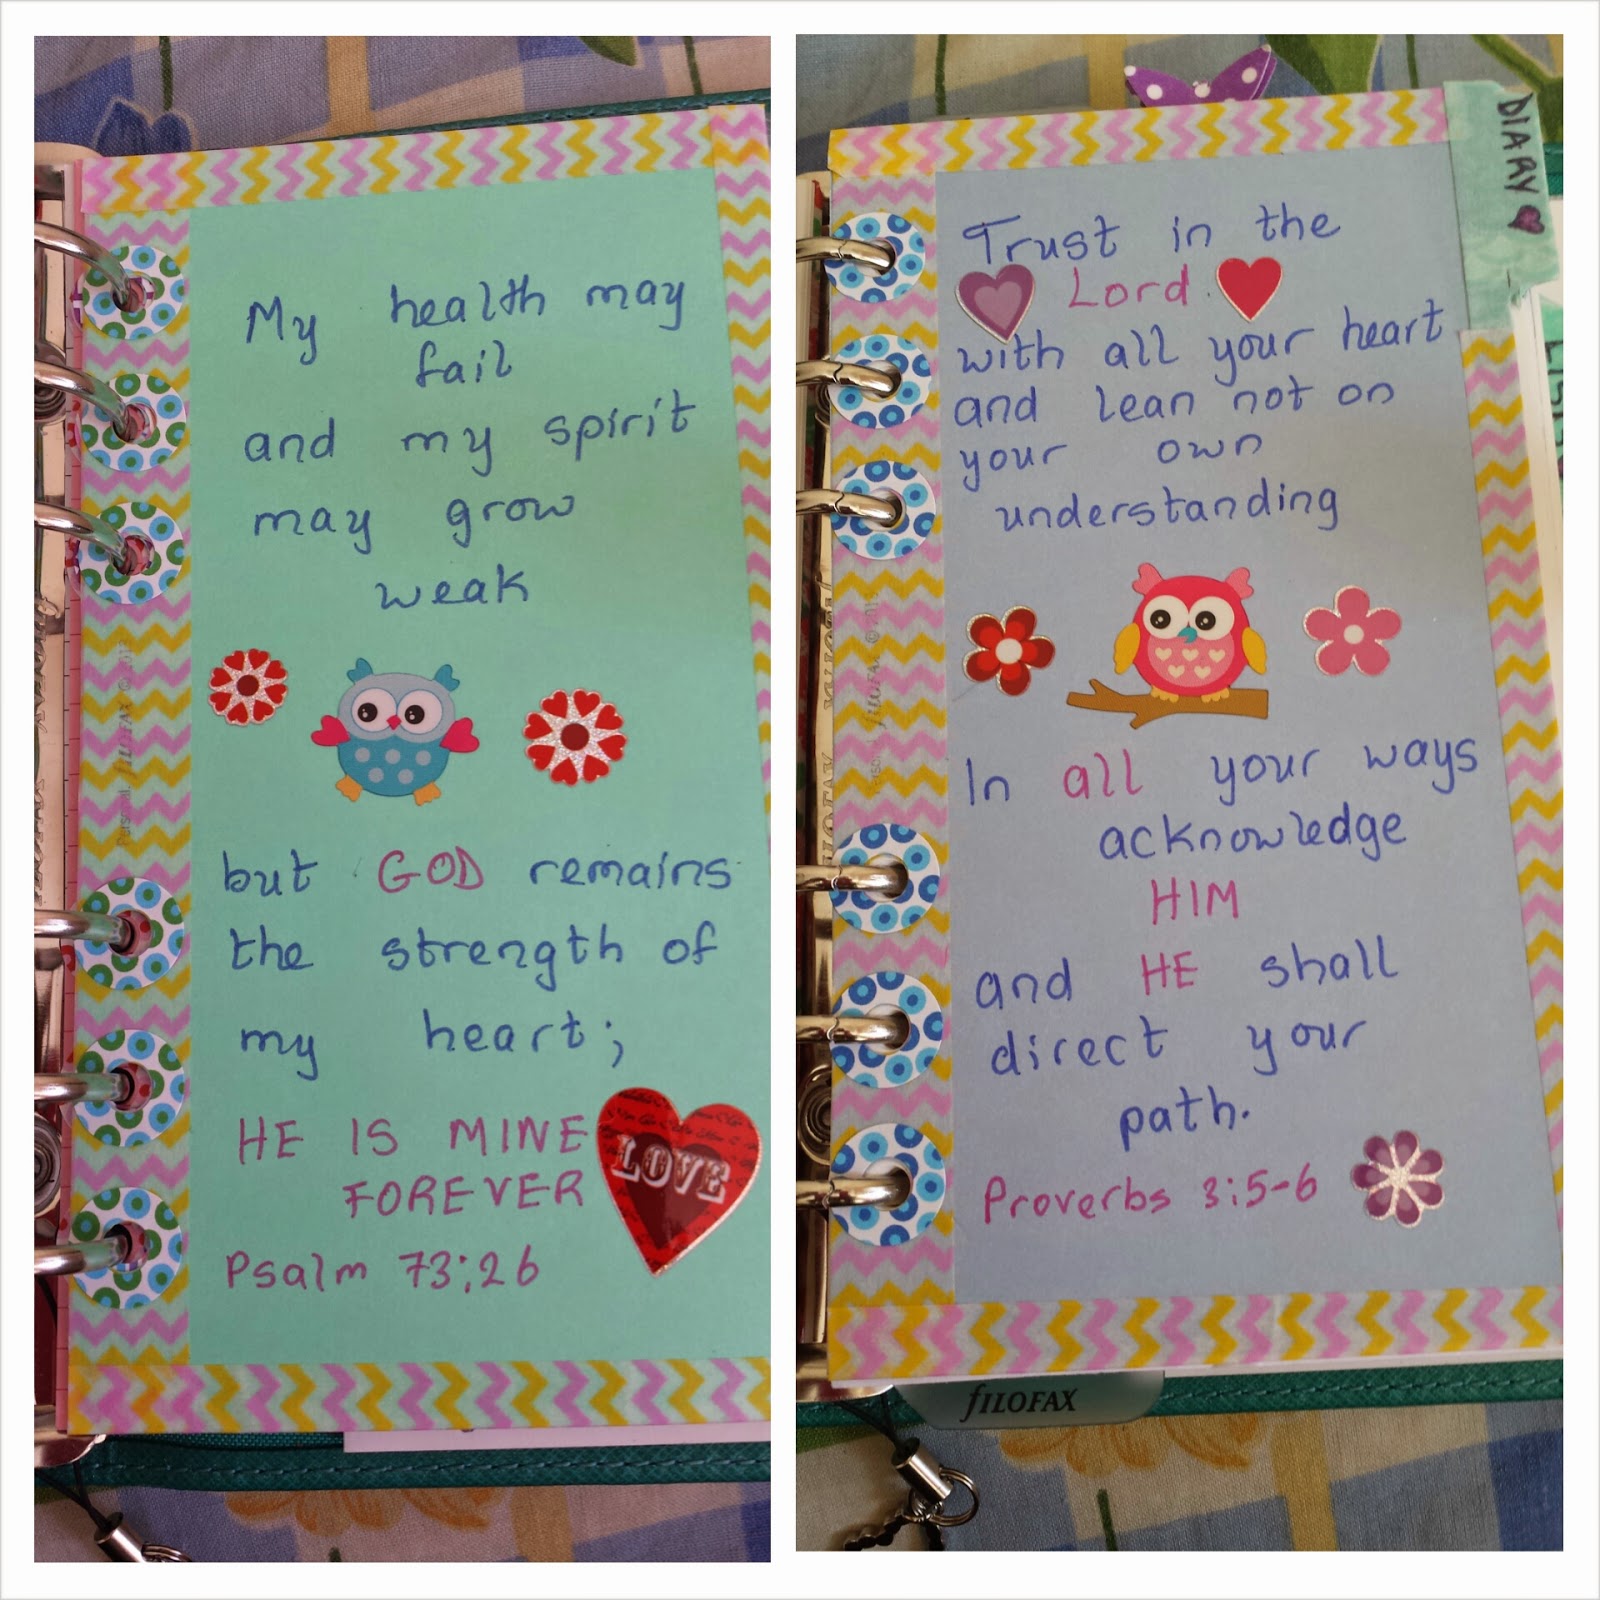 My health may
fail
and my spirit
may grow
weak
but GOD remains
the strength of
my heart;
HE IS MINE
FOREVER
LOVE
Psalm 73:26
Personal, fILOFAX © 2012
DIARY
Trust in the
Lord
with all your heart
and lean not on
your own
understanding
In all your ways
acknowledge
HIM
and HE shall
direct your
path.
Proverbs 3:5-6
fILOFAX